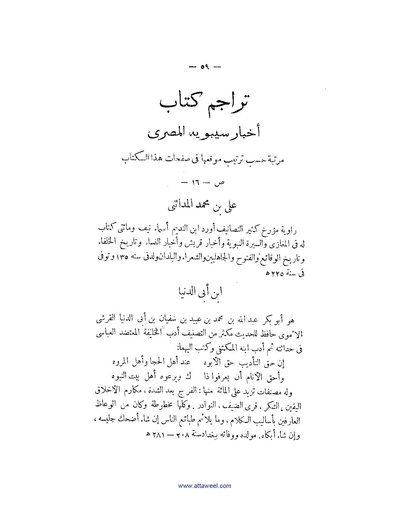 — ٥٩ —
تراجم كتاب
أخبار سيبويه المصرى
مرتبة حسب ترتيب موقعها فى صفحات هذا الكتاب
ص — ١٦ —
على بن محمد المدائنى
راوية مؤرخ كثير التصانيف أورد ابن النديم أسماء نيف ومائتى كتاب
له فى المغازى والسيرة النبوية وأخبار قريش وأخبار النساء وتاريخ الخلفاء
وتاريخ الوقائع والفتوح والجاهليين والشعراء والبلدان ولد فى سنة ١٣٥ وتوفى
فى سنة ٢٢٥ ه
ابن أبى الدنيا
هو أبو بكر عبد الله بن محمد بن عبيد بن سفيان بن أبى الدنيا القرشى
الأموى حافظ للحديث مكثر من التصنيف أدب الخليفة المعتضد العباسى
فى حداثته ثم أدب ابنه المكتفى وكتب اليهما:
إن حق التأديب حق الأبوه عند أهل الحجا وأهل المروه
وأحق الأنام أن يعرفوا ذا ك ويرعوه أهل بيت النبوه
وله مصنفات تزيد على المائة منها: الفرج بعد الشدة، مكارم الأخلاق
اليقين، الشكر، قرى الضيف، النوادر. وكلها مخطوطة وكان من الوعاظ
العارفين بأساليب الكلام، وما يلائم طبائع الناس إن شاء أضحك جليسه،
وإن شاء أبكاه. مولده ووفاته ببغداد سنة ٢٠٨ — ٢٨١ ه
www.attaweel.com